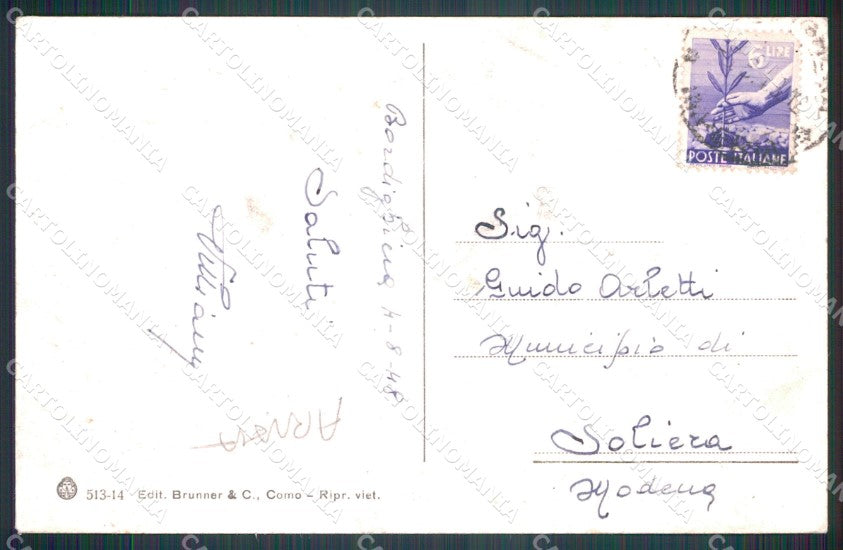 Bordighiera 4-8-48
Saluti
Villiam
6 LIRE
POSTE ITALIANE
Sig.
Guido Arletti
Municipio di
Soliera
Modena
513-14 Edit. Brunner & C., Como - Ripr. viet.
CARTOLINOMANIA